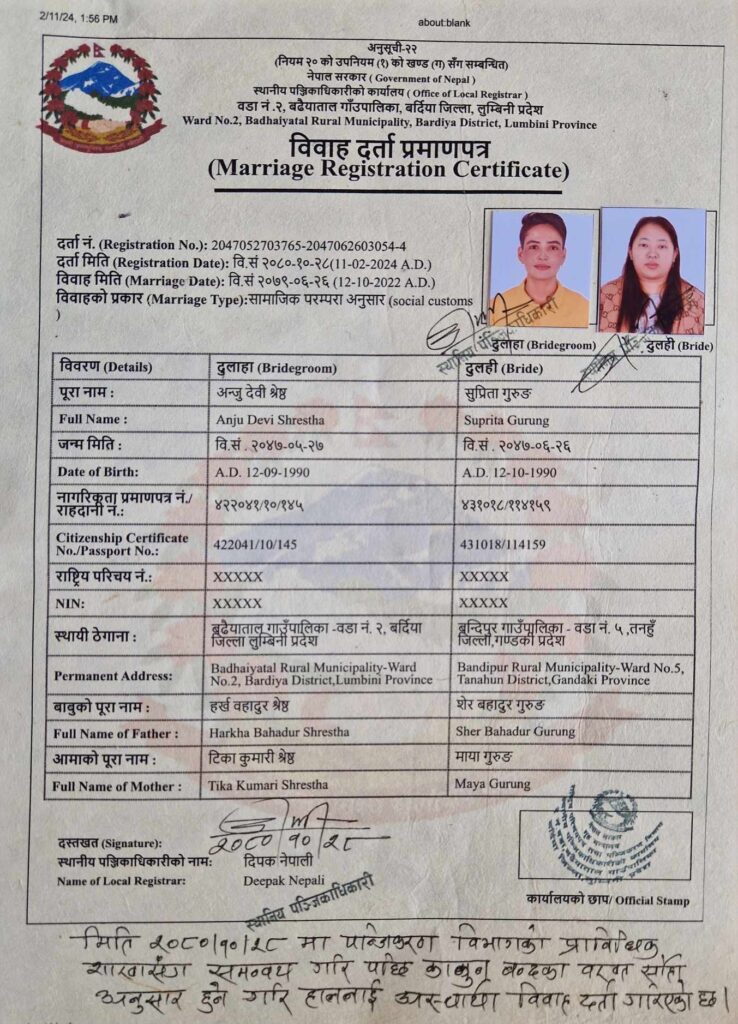 2/11/24, 1:56 PM
about:blank
अनुसूची-२२
(नियम २० को उपनियम (१) को खण्ड (ग) सँग सम्बन्धित)
नेपाल सरकार ( Government of Nepal )
स्थानीय पञ्जिकाधिकारीको कार्यालय ( Office of Local Registrar )
वडा नं .२, बढैयाताल गाउँपालिका, बर्दिया जिल्ला, लुम्बिनी प्रदेश
Ward No.2, Badhaiyatal Rural Municipality, Bardiya District, Lumbini Province
विवाह दर्ता प्रमाणपत्र
(Marriage Registration Certificate)
दर्ता नं. (Registration No.): 2047052703765-2047062603054-4
दर्ता मिति (Registration Date): वि.सं २०८०-१०-२८(11-02-2024 A.D.)
विवाह मिति (Marriage Date): वि.सं २०७९-०६-२६ (12-10-2022 A.D.)
विवाहको प्रकार (Marriage Type):सामाजिक परम्परा अनुसार (social customs
)
स्थानिय पञ्जिकाधिकारी
दुलाहा (Bridegroom) दुलही (Bride)
विवरण (Details) दुलाहा (Bridegroom) दुलही (Bride)
पूरा नाम : अन्जु देवी श्रेष्ठ सुप्रिता गुरुङ
Full Name : Anju Devi Shrestha Suprita Gurung
जन्म मिति : वि.सं . २०४७-०५-२७ वि.सं . २०४७-०६-२६
Date of Birth: A.D. 12-09-1990 A.D. 12-10-1990
नागरिकता प्रमाणपत्र नं./
राहदानी नं.: ४२२०४१/१०/१४५ ४३१०१८/११४१५९
Citizenship Certificate
No./Passport No.: 422041/10/145 431018/114159
राष्ट्रिय परिचय नं.: XXXXX XXXXX
NIN: XXXXX XXXXX
स्थायी ठेगाना : बढैयाताल गाउँपालिका -वडा नं. २, बर्दिया बन्दिपुर गाउँपालिका - वडा नं. ५ ,तनहुँ
जिल्ला लुम्बिनी प्रदेश जिल्ला,गण्डकी प्रदेश
Permanent Address: Badhaiyatal Rural Municipality-Ward Bandipur Rural Municipality-Ward No.5,
No.2, Bardiya District,Lumbini Province Tanahun District,Gandaki Province
बाबुको पूरा नाम : हर्ख वहादुर श्रेष्ठ शेर बहादुर गुरुङ
Full Name of Father : Harkha Bahadur Shrestha Sher Bahadur Gurung
आमाको पूरा नाम : टिका कुमारी श्रेष्ठ माया गुरुङ
Full Name of Mother : Tika Kumari Shrestha Maya Gurung
दस्तखत (Signature): २०८०/१०/२८
स्थानीय पञ्जिकाधिकारीको नाम: दिपक नेपाली
Name of Local Registrar: Deepak Nepali
स्थानिय पञ्जिकाधिकारी
कार्यालयको छाप/ Official Stamp
मिति २०८०/१०/२८ मा पञ्जिकरण विभागको प्राविधिक
शाखासँग समन्वय गरि पछि कानुन बन्दका वखत सोहि
अनुसार हुने गरि हाललाई अस्थायी विवाह दर्ता गरिएको छ।